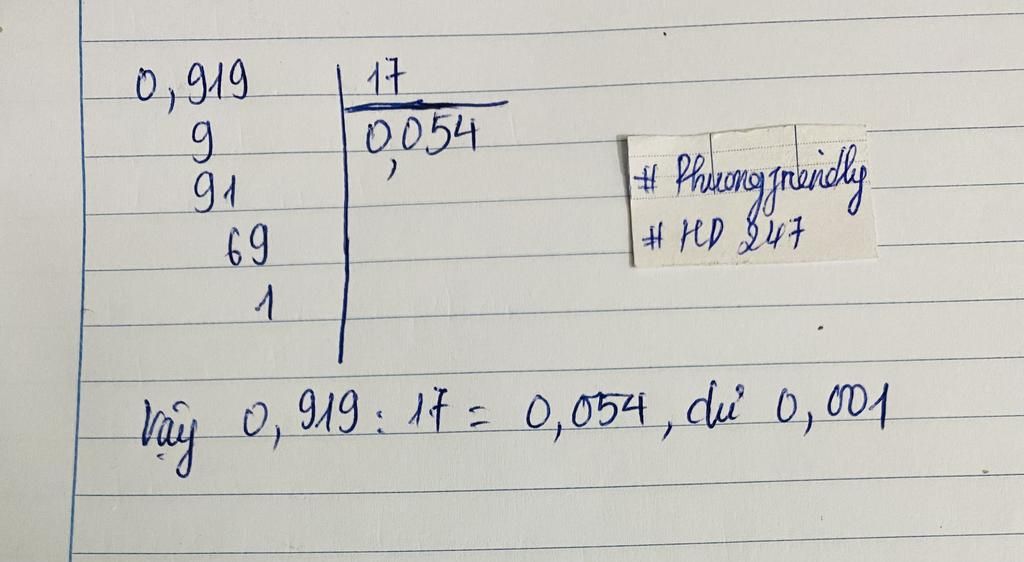 0,919 17
9 0,054
91
69
1
# Phuongfriendly
# HD 247
Vậy 0,919 : 17 = 0,054, dư 0,001